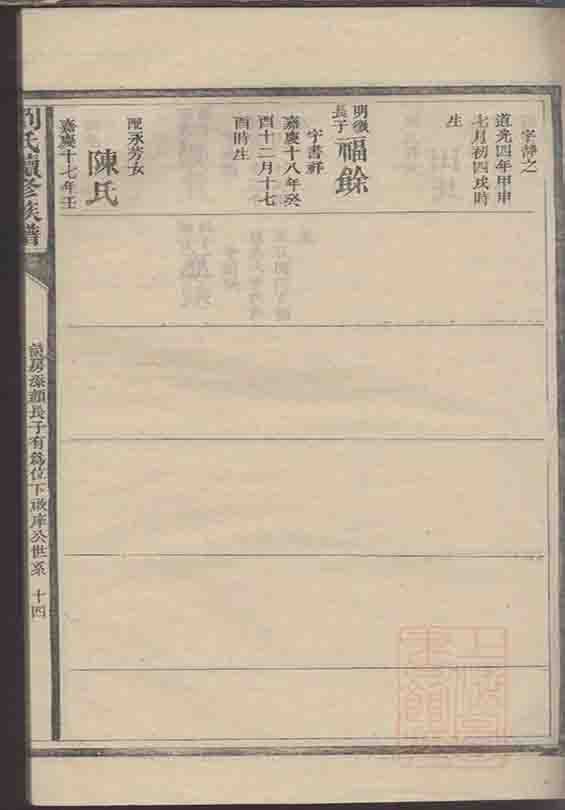 字靜之
道光四年甲申
七月初四戌時
生
明徵
長子
福餘
字書祥
嘉慶十八年癸
酉十二月十七
酉時生
配永芳女
陳氏
嘉慶十七年壬
劉氏續修族譜
房藻顏長子有爲位下啟庠公世系 十四
上
圖書館